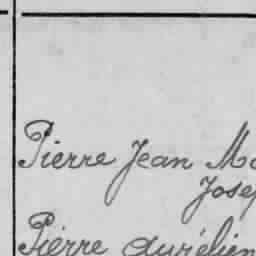 Pierre Jean Ma
Josep
Pierre Aurélien